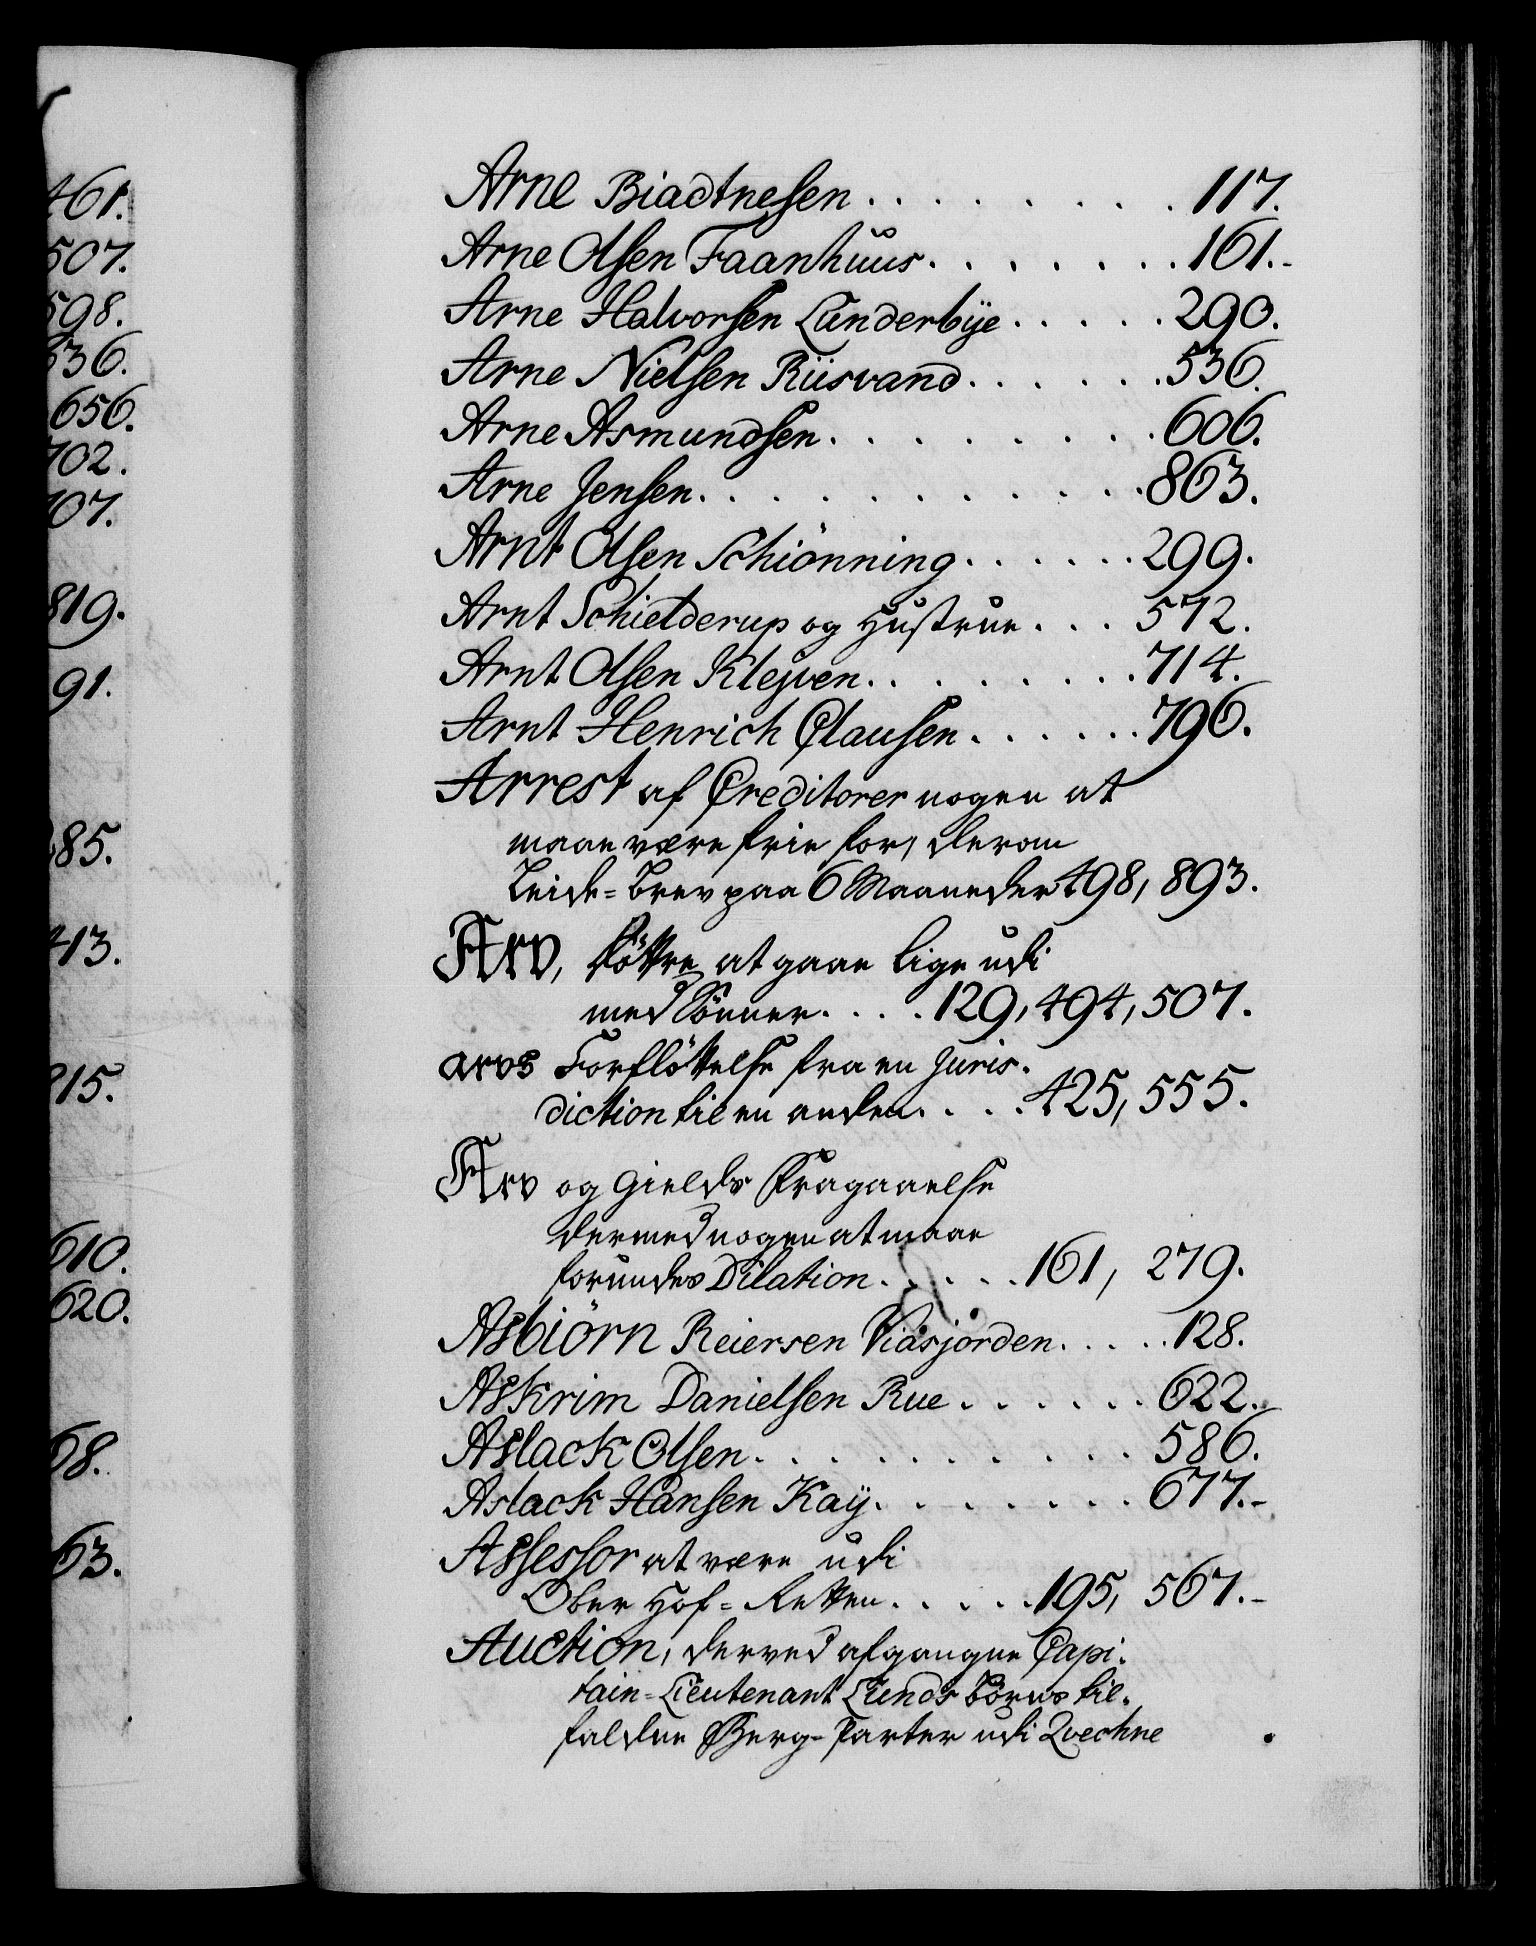 461.
507.
598.
536.
656.
702.
707.
819.
91.
285.
413.
815.
610.
620.
68.
63.
Arne Biadtnesen . . . . . . . . . 117.
Arne Olsen Faanhuus . . . . . . . . 161.-
Arne Halvorsen Lunderbÿe . . . . . 290.
Arne Nielsen Riisvand . . . . . . 536.
Arne Asmundsen . . . . . . . . 606.
Arne Jensen . . . . . . . . . . 863.
Arnt Olsen Schiönning . . . . . . 299.
Arnt Schielderup og Hustrue . . . 572.
Arnt Olsen Kleÿven . . . . . . . . 714.
Arnt Henrich Clausen . . . . . . 796.
Arrest af Creditorer nogen at
maae være frie for, derom
Leide-Brev paa 6 Maaneder 498, 893.
Arv, Døttre at gaae lige udi
med Sönner . . . . 129, 494, 507.
Arvs Forflöttelse fra en Juris-
diction til en anden . . . . 425, 555.
Arv og Gields Fragaaelse
dermed nogen at maae
forundes Dilation . . . . . 161, 279.
Asbiörn Reiersen Viasjorden . . . . . 128.
Askrim Danielsen Rue . . . . . . 622.
Aslack Olsen . . . . . . . . . . 586.
Aslack Hansen Kaÿ . . . . . . . . 677.-
Assessor at være udi
Ober Hof-Retten . . . . . 195, 567.-
Auction, derved afgangne Capi-
tain-Lieutenant Lunds Börns til-
faldne Berg-Parter udi Qvechne